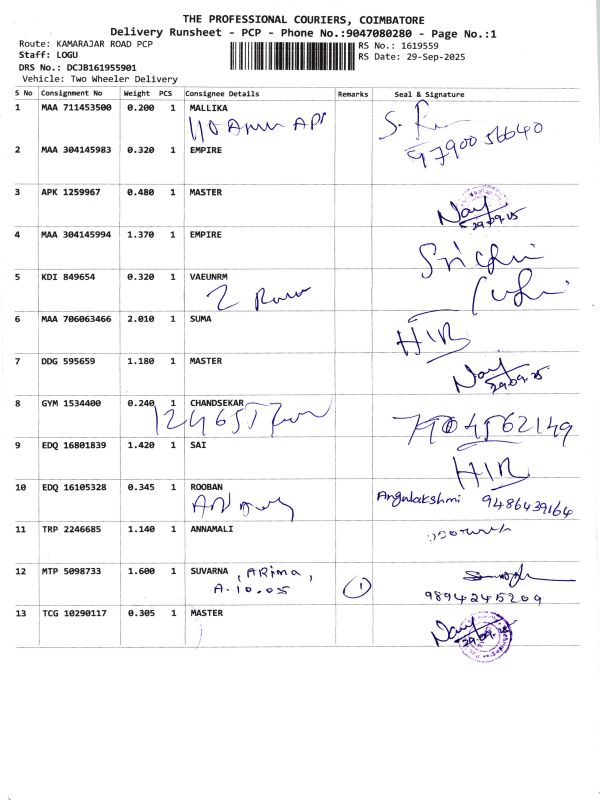 THE PROFESSIONAL COURIERS, COIMBATORE
Delivery Runsheet - PCP - Phone No.:9047080280 - Page No.:1
Route: KAMARAJAR ROAD PCP
RS No.: 1619559
Staff: LOGU
RS Date: 29-Sep-2025
DRS No.: DCJB161955901
Vehicle: Two Wheeler Delivery
S No Consignment No Weight PCS Consignee Details Remarks Seal & Signature
1 MAA 711453500 0.200 1 MALLIKA
110
97900 56640
2 MAA 304145983 0.320 1 EMPIRE
3 APK 1259967 0.480 1 MASTER
29.09.25
4 MAA 304145994 1.370 1 EMPIRE
5 KDI 849654 0.320 1 VAEUNRM
2
6 MAA 706063466 2.010 1 SUMA
7 DDG 595659 1.180 1 MASTER
29.09.25
8 GYM 1534400 0.240 1 CHANDSEKAR
7904562149
9 EDQ 16801839 1.420 1 SAI
10 EDQ 16105328 0.345 1 ROOBAN
Angulakshmi 9486439164
11 TRP 2246685 1.140 1 ANNAMALI
12 MTP 5098733 1.600 1 SUVARNA , ARima,
A.10.05 1
9894245209
13 TCG 10290117 0.305 1 MASTER
29.09.